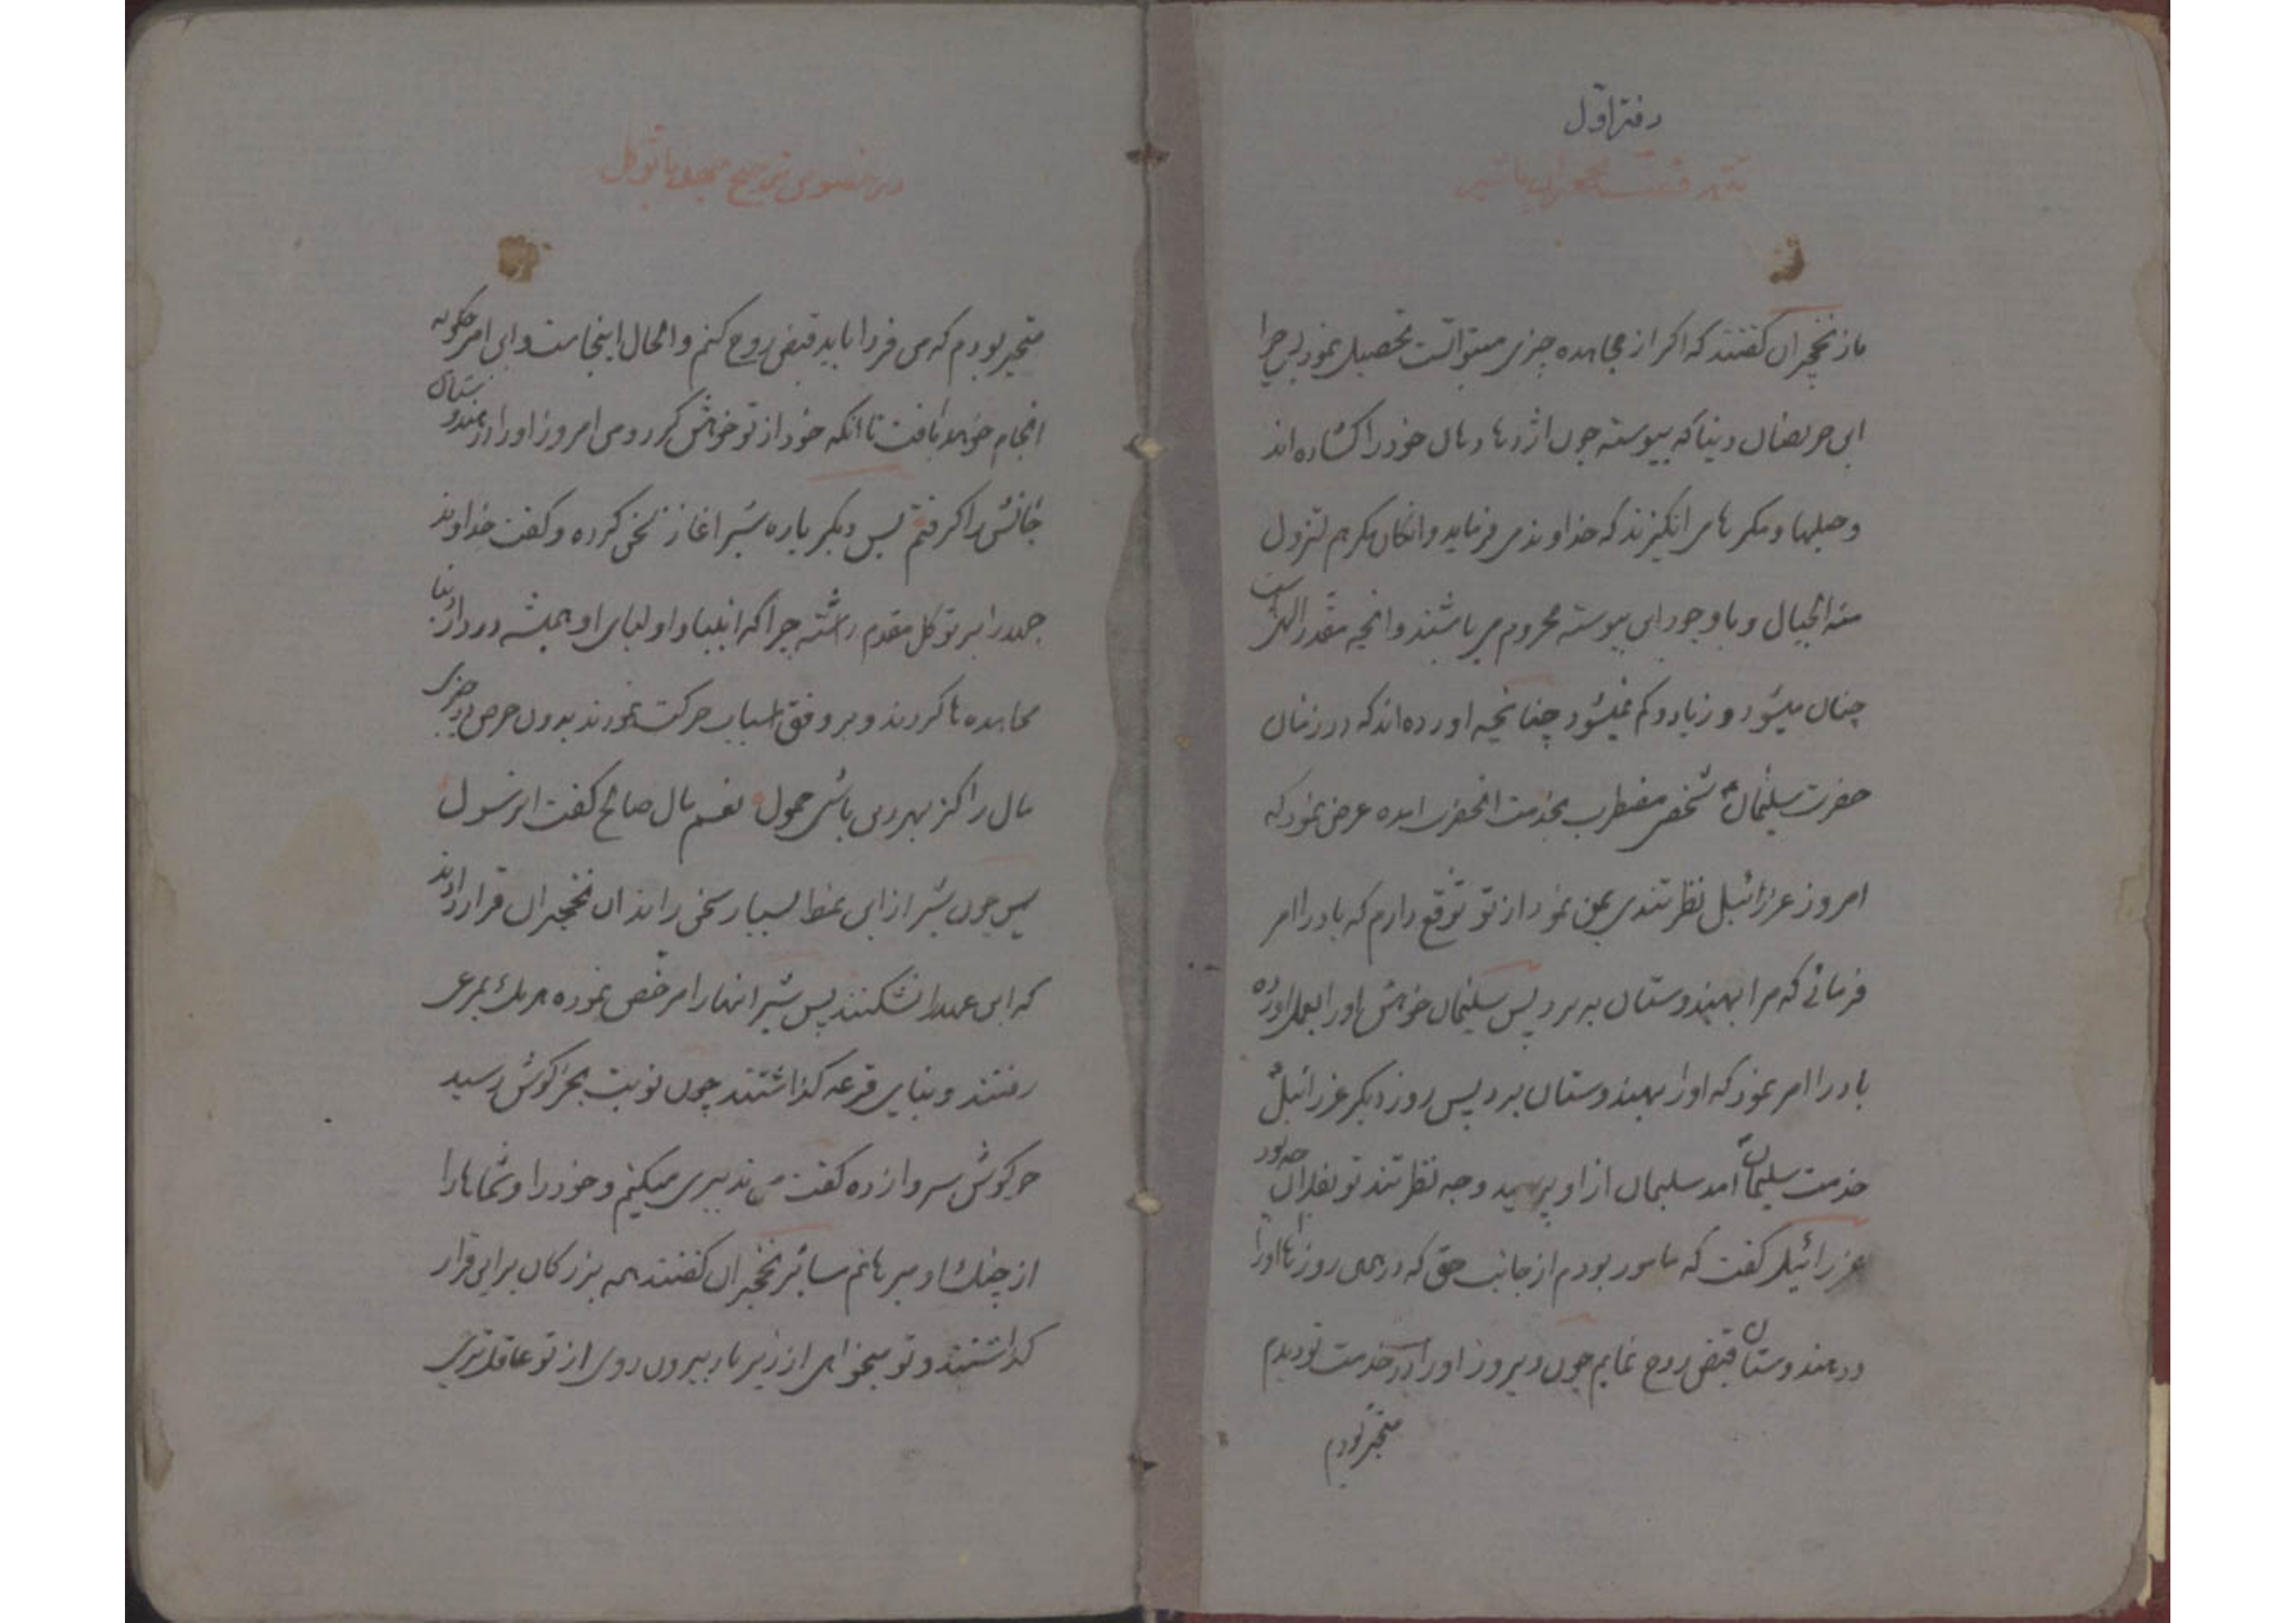 دفتر اول
تتمه قصه نخجیران با شیر
باز نخجیران گفتند که اگر از مجاهده چیزی میتوانست تحصیل نمود پس چرا
این حریصان دنیا که پیوسته چون اژدها دهان خود را گشاده اند
و حیلها و مکرها می انگیزند که خداوند می فرماید و ان کان مکرهم لتزول
منه الجبال و با وجود این پیوسته محروم می باشند و انچه مقدر الهی است
چنان میشود و زیاد و کم نمیشود چنانچه اورده اند که در زمان
حضرت سلیمان شخص مضطرب بخدمت انحضرت امده عرض نمود که
امروز عزرائیل نظر تندی بمن نمود از تو توقع دارم که باد را امر
فرمائی که مرا بهندوستان به برد پس سلیمان خواهش او را بعمل اورده
باد را امر نمود که او را بهندوستان برد پس روز دیگر عزرائیل
خدمت سلیمان آمد سلیمان از او پرسید وجه نظر تند تو بفلان چه بود
عزرائیل گفت که مامور بودم از جانب حق که در همین روزها او را
در هندوستان قبض روح نمایم چون دیروز او را در خدمت تو دیدم
متحیر بودم
در خصوص ترجیح جهد با توکل
متحیر بودم که من فردا باید قبض روح کنم و الحال اینجاست و این امر چگونه
انجام خواهد یافت تا انکه خود از تو خواهش کرد و من امروز او را در هندوستان
جانش را گرفتم پس دیگر باره شیر اغاز سخن کرده و گفت خداوند
جهد را بر توکل مقدم داشته چرا که انبیا و اولیای او همیشه در دار دنیا
مجاهده ها کردند و بر وفق اسباب حرکت نمودند بدون حرص در چیزی
مال را کز بهر دین باشی حمول نعم مال صالح گفت ان رسول
پس چون شیر از این نمط بسیار سخن راند ان نخجیران قرار دادند
که این عهد را نشکنند پس شیر انها را مرخص نموده هر یک بمرعی
رفتند و بنای قرعه گذاشتند چون نوبت بخرگوش رسید
خرگوش سر وا زده گفت من تدبیری میکنم و خود را و شماها را
از چنگ او میرهانم سائر نخجیران گفتند همه بزرگان بر این قرار
گذاشتند و تو میخواهی از زیر بار بیرون روی از تو عاقل تری